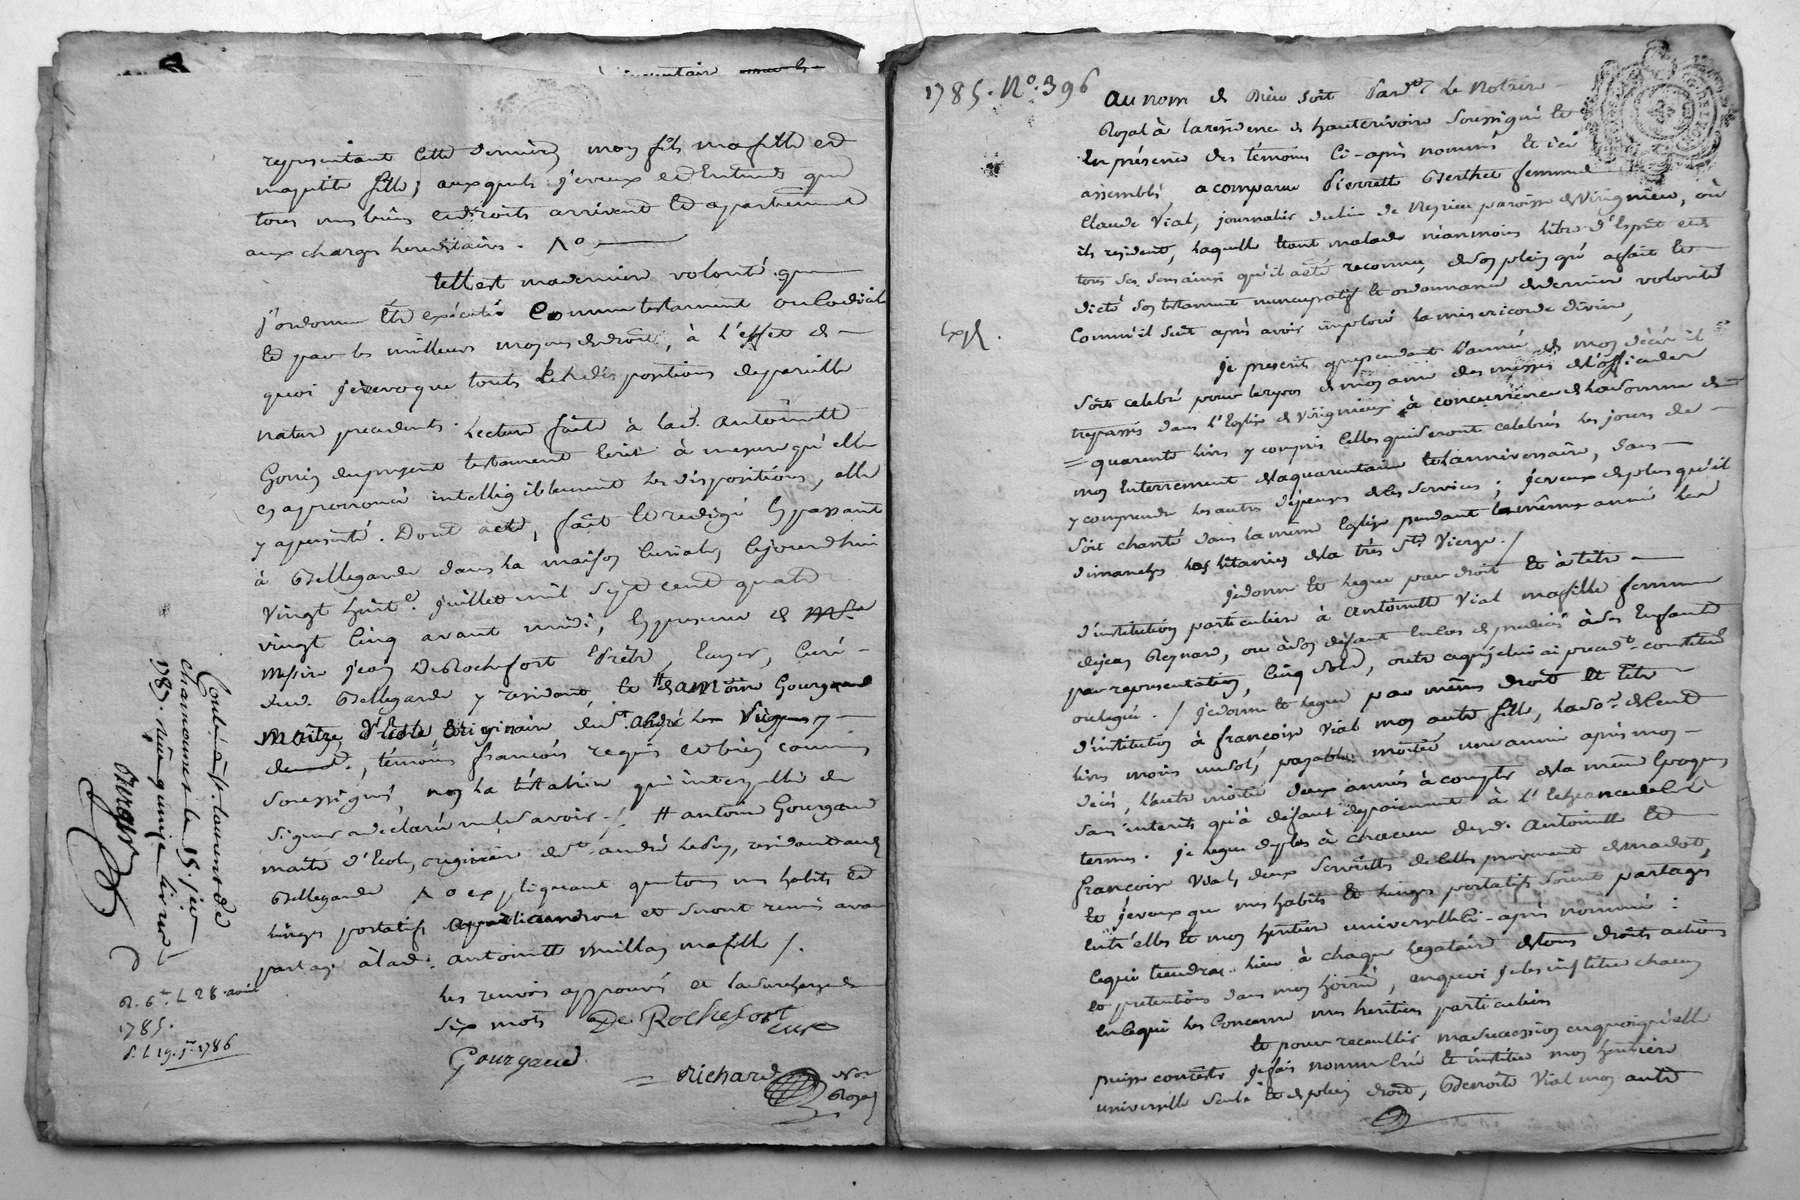 representant cette derniere, mon fils ma fille et
ma petite fille; auxquels je veux et entends que
tous mes biens et droits arrivent et apartiennent
aux charges hereditaires. No
telle est ma derniere volonté que
j'ordonne être exécutée comme testament ou codicile
et par les meilleurs moyens de droit, à l'effet de
quoi je revoque toutes les dispositions de pareille
nature precedentes. Lecture faite à lad. Antoinette
Gonin du present testament écrit à mesure qu'elle
en a prononcé intelligiblement les dispositions, elle
y a persisté. Dont acte, fait et redigé
à Bellegarde dans la maison curiale, cejourd'hui
vingt huit juillet mil sept cent quatre
vingt cinq avant midi, en presence de
messire jean De Rochefort Prêtre, curé
dud. Bellegarde y residant et Antoine Gourgaud
maître d'école originaire de St. André
témoins françois requis et bien connus
soussignés, non la testatrice qui interpellée de
signer a declaré ne le savoir. /. # antoine Gourgaud
maitre d'Ecole, originaire de St. andré le Puy, residant aud.
Bellegarde No expliquant que tous mes habits et
linges portatifs appartiendront et seront remis avant
partage à lad. antoinette millan ma fille /.
Les renvois approuvés et la surcharge de
six mots De Rochefort curé
Gourgaud
Richard Nore Royal
Controlé à St. Laurent de
chamousset le 15. 
178 . quinze livres
R. 6s. L 28. aout
1785.
d. L 19. 1786
1785. No. 396
Exp.
Au nom de Dieu soit Pardt. Le Notaire
Royal à la residence de hauterivoire soussigné et
En présence des témoins ci-après nommés et ici
assemblés, a comparue Pierrette Berthet femme
Claude Vial, journalier du lieu de paroisse de Virignieu, où
ils resident, laquelle etant malade néanmoins libre d'esprit et de
tous ses sens ainsi qu'il a été reconnu, de son plein gré a fait et
dicté son testament nuncupatif et ordonnance de derniere volonté
comm'il suit après avoir imploré la misericorde divine,
je prescrit que pendant l'année de mon décès il
soit celebré pour le repos de mon ame des messes et l'office des
trepassés dans l'Eglise de Virignieux à concurrence de la somme de
= quarente livres y compris celles qui seront celebrés les jours de
mon enterrement de la quarantaine et l'anniversaire, sans
y comprendre les autres dépenses de ces services; je veux de plus qu'il
soit chanté dans la même Eglise pendant la même année les
dimanches les litanies de la très Ste. Vierge. /
je donne et legue par droit et à titre
d'institution particuliere à antoinette Vial ma fille femme
de jean Reynard, ou à son défaut à ses Enfants
par representation, cinq sols, outre ce que je lui ai precedt. constitué
ou legué. / Je donne et legue par même droit et titre
d'institution à françoise Vial mon autre fille, la so. de cent
livres moins un sol, payable moitié une année après mon
décès, l'autre moitié deux années à compter de la même Epoque
sans interets qu'à défaut de paiement à l'echeance desd.
termes. Je legue de plus à chacune desd. Antoinette et
françoise Vial, deux serviettes de celles provenant de ma dot,
et je veux que mes habits et linges portatifs soient partagés
entr'elles et mon héritiere universelle ci-après nommée:
ce qui tiendra lieu à chaque legataire de tous droits actions
et pretentions dans mon hoirie, en quoi je les institue chacun
en ce qui les concerne mes heritiers particuliers
Et pour recueillir ma succession en quoi qu'elle
puisse consister je fais nomme crée et institue mon heritiere
universelle seule et de plein droit, Benoite Vial mon autre